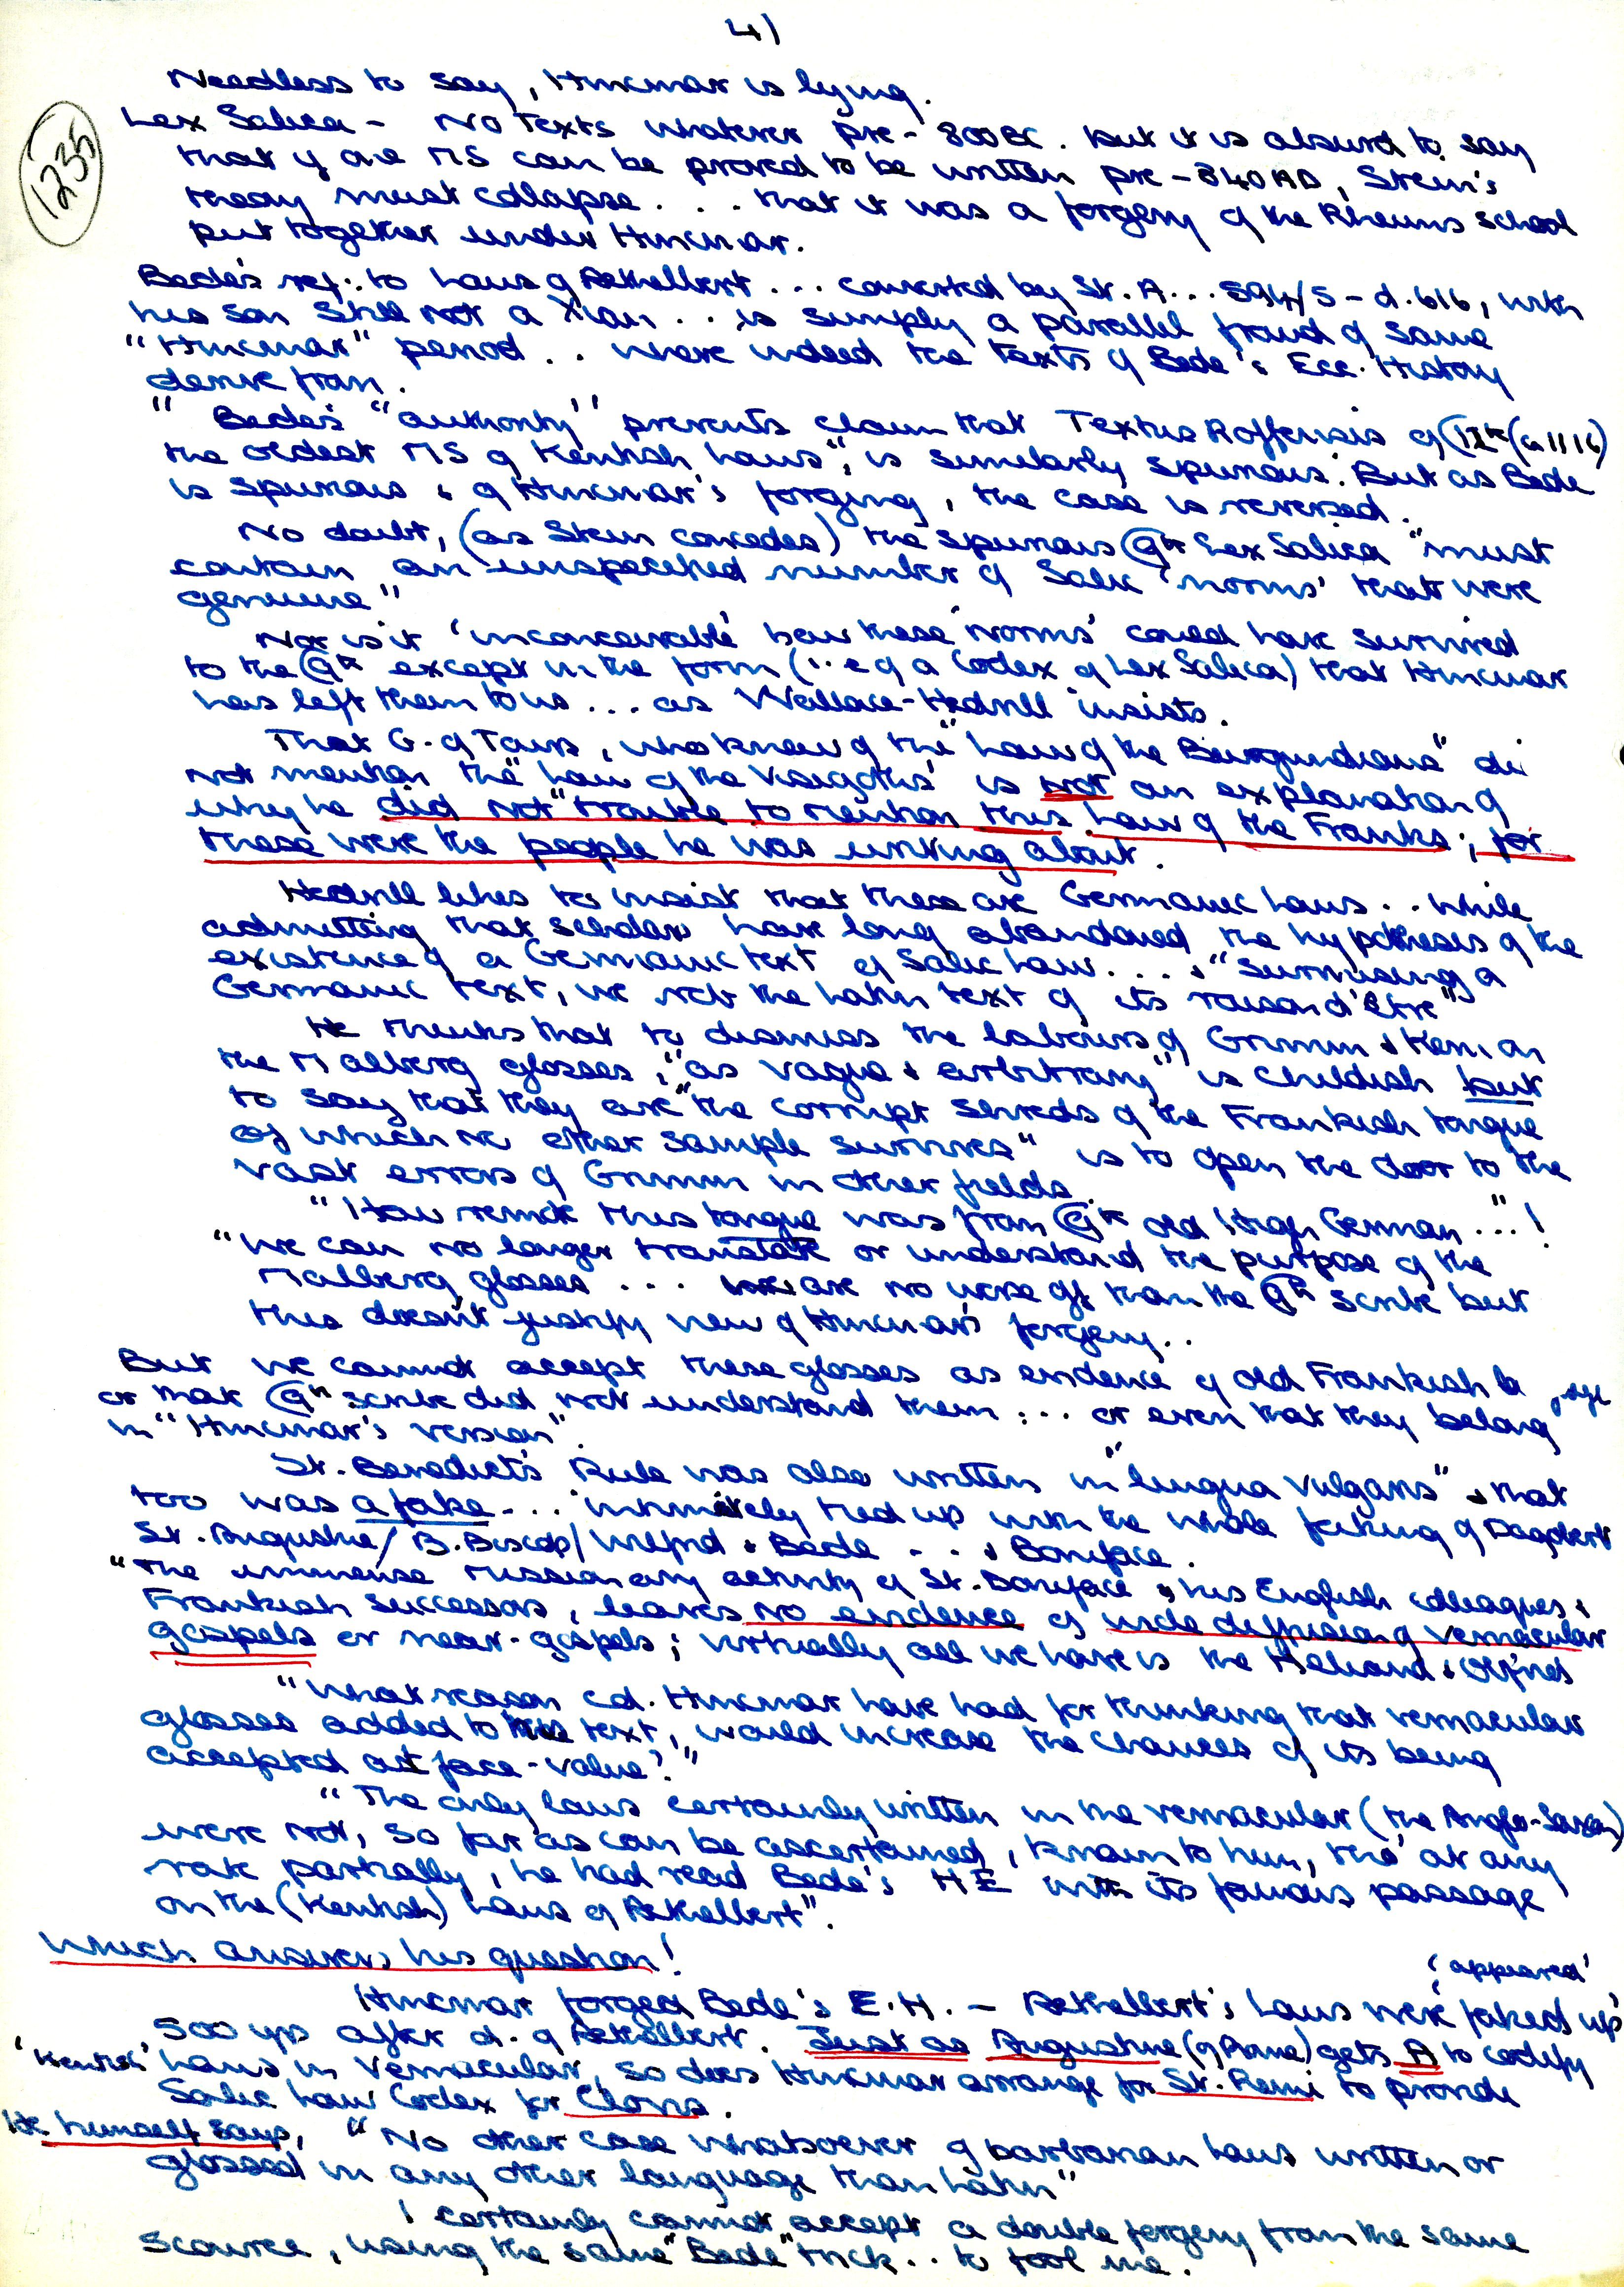 4)
1235
Needless to say, Hincmar is lying.
Lex Salica - No Texts whatever pre-800BC. But it is absurd to say
that if one MS can be proved to be written pre-840AD, Stein's
theory must collapse . . . that it was a forgery of the Rheims school
put together under Hincmar.
Bede's ref: to Laws of Aethelbert ... converted by St. A... 594/5 - d. 616, with
his son still not a Xian .. is simply a parallel fraud of same
"Hincmar" period .. where indeed the Texts of Bede's Ecc. History
derive from.
"Bede's "authority" prevents claim that Textus Roffensis of 12th (c 1116)
the oldest MS of Kentish Laws", is similarly spurious. But as Bede
is spurious & of Hincmar's forging, the case is reversed.
No doubt, (as Stein concedes) the spurious 9th Lex Salica "must
contain an unspecified number of Salic 'norms' that were
genuine"
Nor is it 'inconceivable' how these 'norms' could have survived
to the 9th except in the form (i.e of a Codex of Lex Salica) that Hincmar
has left them to us ... as Wallace-Hadrill insists.
That G. of Tours, who knew of the "Law of the Burgundians" di
not mention the "Law of the Visigoths" is not an explanation of
why he did not "trouble to mention this Law of the Franks; for
these were the people he was writing about.
Hadrill likes to insist that these are Germanic Laws .. while
admitting that scholars have long abandoned the hypothesis of the
existence of a Germanic text of Salic Law. . . . & "surmising a
Germanic text, we rob the Latin text of its raison d'être"
He thinks that to dismiss the labours of Grimm & Kern on
the Malberg glosses, "as vague & arbitrary" is childish but
to say that they are "the corrupt shreds of the Frankish tongue
of which no other sample survives" is to open the door to the
vast errors of Grimm in other fields.
"How remote this tongue was from 9th old High German ..." !
"We can no longer translate or understand the purpose of the
Malberg glosses ... we are no worse off than the 9th scribe but
this doesn't justify view of Hincmar's forgery. .
But we cannot accept these glosses as evidence of old Frankish
or that 9th scribe did not understand them : ... or even that they belong
in "Hincmar's version".
St. Benedict's Rule was also written in "lingua vulgaris" & that
too was a fake ... intimately tied up with the whole faking of Dagobert
St. Augustine / B. Biscop / Wilfrid & Bede . . . & Boniface.
"The immense missionary activity of St. Boniface & his English colleagues &
Frankish successors, leaves no evidence of wide diffusion of vernacular
gospels or near-gospels; virtually all we have is the Heliand & Otfrid's
"What reason cd. Hincmar have had for thinking that vernacular
glosses added to this text, would increase the chances of its being
accepted at face-value?"
"The only laws certainly written in the vernacular (the Anglo-Saxon)
were not, so far as can be ascertained, known to him, tho' at any
rate partially, he had read Bede's HE with its famous passage
on the (Kentish) Laws of Aethelbert".
Which answers his question!
'appeared'
Hincmar forged Bede's E.H. - Aethelbert's Laws were 'faked up'
500 yrs after d. of Aethelbert. Just as Augustine (of Rome) gets A to codify
'Kentish' Laws in vernacular, so does Hincmar arrange for St. Remi to provide
Salic Law Codex for Clovis.
He himself says, "No other case whatsoever of barbarian laws written or
glossed in any other language than Latin"
I certainly cannot accept a double forgery from the same
scource, using the same "Bede" trick .. to fool me.